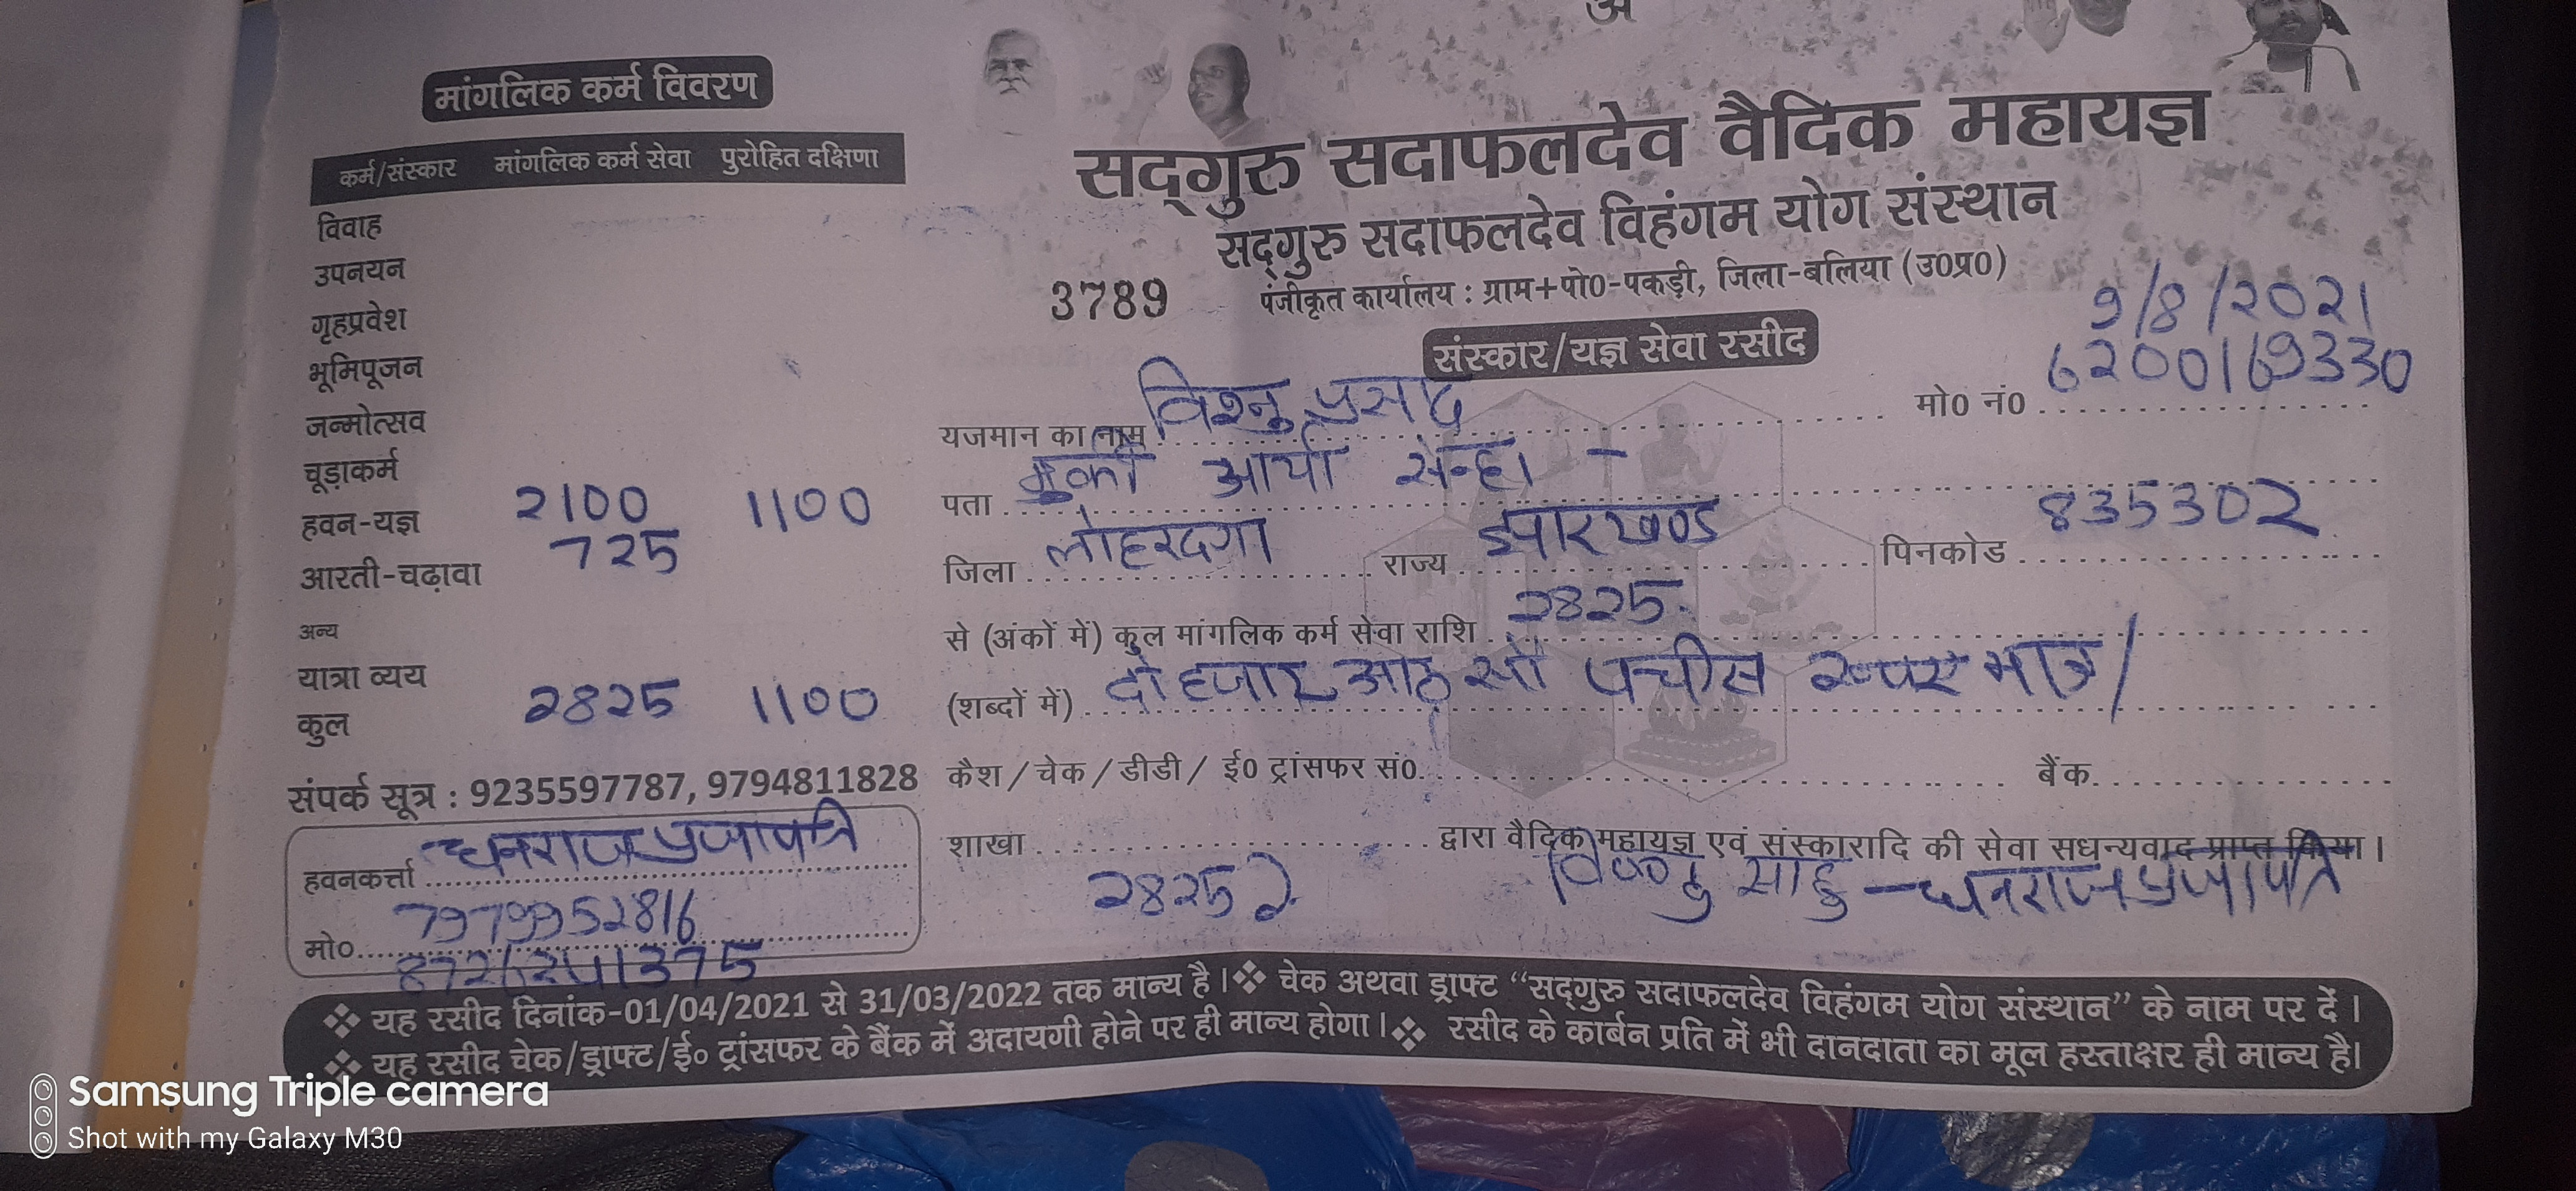 मांगलिक कर्म विवरण
कर्म/संस्कार मांगलिक कर्म सेवा पुरोहित दक्षिणा
विवाह
उपनयन
गृहप्रवेश
भूमिपूजन
जन्मोत्सव
चूड़ाकर्म
हवन-यज्ञ 2100 1100
आरती-चढ़ावा 725
अन्य
यात्रा व्यय
कुल 2825 1100
संपर्क सूत्र : 9235597787, 9794811828
हवनकर्त्ता धनराज प्रजापति
मो० 7979952816
सद्गुरु सदाफलदेव वैदिक महायज्ञ
सद्गुरु सदाफलदेव विहंगम योग संस्थान
3789 पंजीकृत कार्यालय : ग्राम+पो0-पकड़ी, जिला-बलिया (उ0प्र0)
9/8/2021
संस्कार/यज्ञ सेवा रसीद
यजमान का नाम विश्नु प्रसाद मो0 नं0 6200169330
पता मुर्की आर्या सेन्हा -
जिला लोहरदगा राज्य झारखण्ड पिनकोड 835302
से (अंकों में) कुल मांगलिक कर्म सेवा राशि 2825
(शब्दों में) दो हजार आठ सौ पचीस रूपए मात्र/
कैश/चेक/डीडी/ ई0 ट्रांसफर सं0 बैंक
शाखा द्वारा वैदिक महायज्ञ एवं संस्कारादि की सेवा सधन्यवाद प्राप्त किया।
2825 विष्णु साहु - धनराज प्रजापति
❖ यह रसीद दिनांक-01/04/2021 से 31/03/2022 तक मान्य है। ❖ चेक अथवा ड्राफ्ट “सद्गुरु सदाफलदेव विहंगम योग संस्थान” के नाम पर दें।
❖ यह रसीद चेक/ड्राफ्ट/ई० ट्रांसफर के बैंक में अदायगी होने पर ही मान्य होगा। ❖ रसीद के कार्बन प्रति में भी दानदाता का मूल हस्ताक्षर ही मान्य है।
Samsung Triple camera
Shot with my Galaxy M30